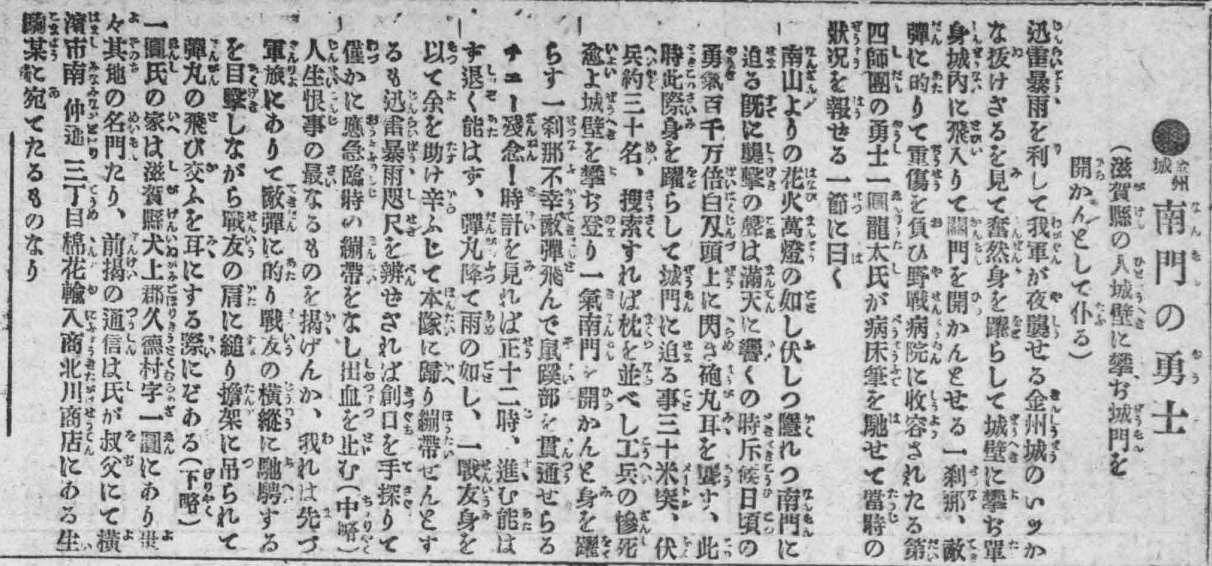 ●金州城南門の勇士
(滋賀縣の人城壁に攀ぢ城門を
開かんとして仆る)
迅雷暴雨を利して我軍が夜襲せる金州城のいッか
な抜けざるを見て奮然身を躍らして城壁に攀ぢ單
身城内に飛入りて關門を開かんとせる一刹那、敵
彈に的りて重傷を負ひ野戰病院に收容されたる第
四師團の勇士一圓龍太氏が病床筆を馳せて當時の
狀況を報せる一節に曰く
南山よりの花火萬燈の如し伏しつ隱れつ南門に
迫る既に襲撃の聲は滿天に響くの時斥候日頃の
勇氣百千万倍白刄頭上に閃き砲丸耳を襲す、此
時此際身を躍らして城門に迫る事三十米突、伏
兵約三十名、捜索すれば枕を並べし工兵の慘死
愈よ城壁を攀ぢ登り一氣南門を開かんと身を躍
らす一刹那不幸敵彈飛んで鼠蹊部を貫通せらる
チエー殘念!時計を見れば正十二時、進む能は
す退く能はす、彈丸降て雨の如し、一戰友身を
以て余を助け辛ふじて本隊に歸り繃帶せんとす
るも迅雷暴雨咫尺を辨せされば創口を手探りて
僅かに應急臨時の繃帶をなし出血を止む(中略)
人生恨事の最なるものを揭げんか、我れは先づ
軍旅にありて敵彈に的り戰友の橫縱に馳騁する
を目擊しながら戰友の肩に縋り擔架に吊られて
彈丸の飛び交ふを耳にする際にぞある(下略)
一圓氏の家は滋賀縣犬上郡久德村字一圓にあり世
々其地の名門たり、前揭の通信は氏が叔父にて橫
濱市南仲通三丁目棉花輸入商北川商店にある生
駒某に宛てたるものなり